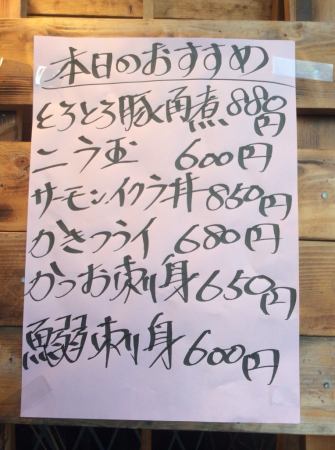 本日のおすすめ
とろとろ豚角煮 880円
ニラ玉 600円
サーモン.イクラ丼 850円
かきフライ 680円
かつお刺身 650円
鰯刺身 600円